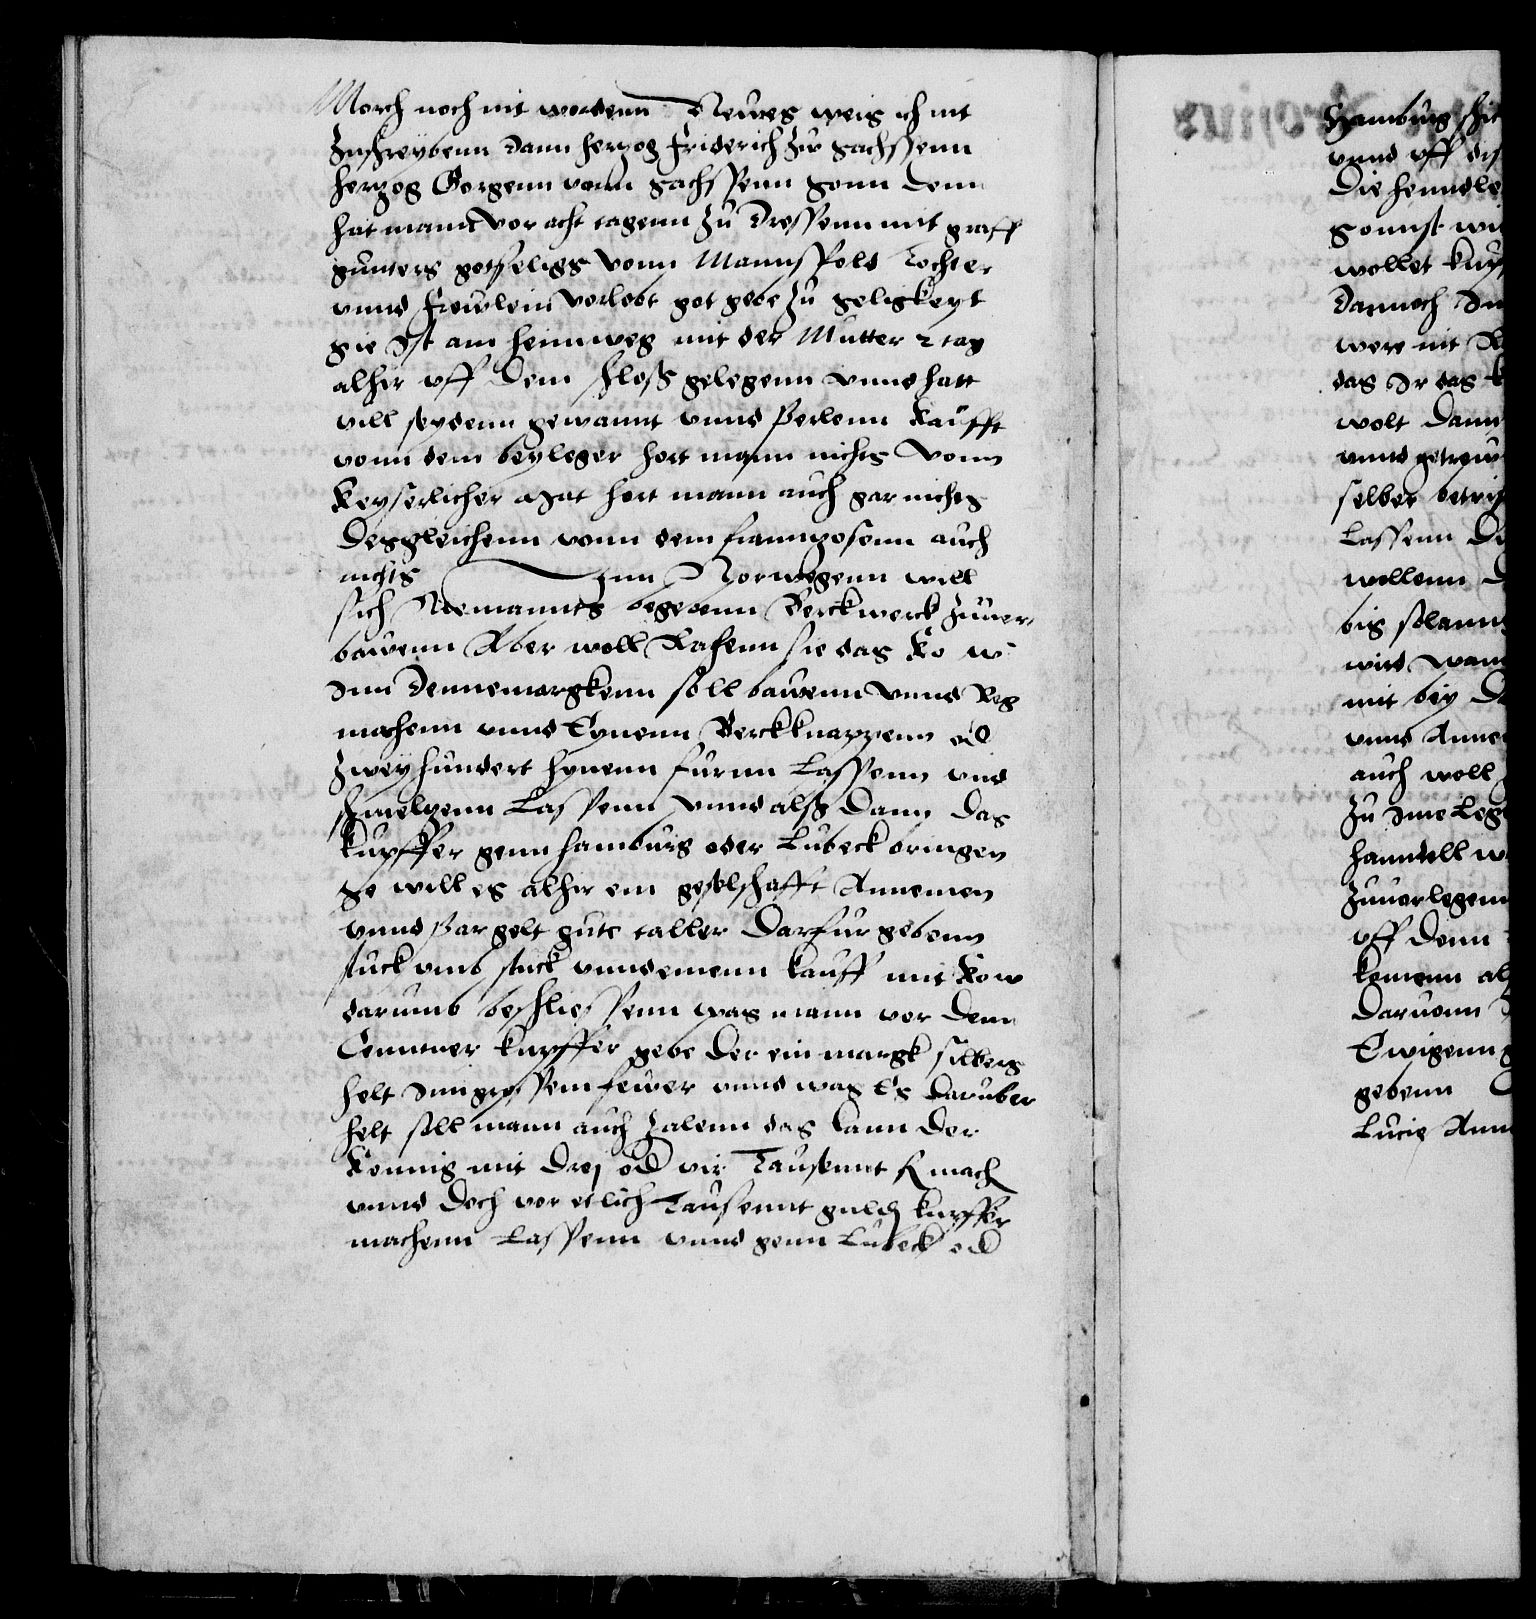 March noch nit wordenn Neuwes weis ich nit
Zuschreybenn dann herzog Friderich Zu Sachssenn
herzog Gorgenn vonn Sachssenn Sonn denn
hat mann vor acht tagenn Zu Dressenn mit graff
gunters gotseligs vonn Mannsfolds Tochter
vnnd Frewlein vorlobt got gebe Zu seligkeyt
Sie Ist am heimweg mit der Mutter 2 tag
alhir vff dem schloß gelegenn vnnd hatt
vill seydenn gewannt vnnd Perlenn kaufft
vonn dem beyleger hort mann nichts vonn
Keyserlicher Mat hort mann auch gar nichts
Desgleichenn vonn dem Franntzosenn auch
nichts Inn Norwegenn will
sich Niemannts begebenn Berckwerck Zuuer-
bawenn Aber woll Rathenn sie das Ko W
Inn Dennemargkenn soll bawenn vnnd
machenn vnnd Eynenn Berckknappenn od
Zweyhundert hynenn furnn Lassenn vnd
schmelzenn Lassenn vnnd alß dann das
kupffer genn hamburg oder Lubeck bringen
So will es alhir ein geselschafft Annemen
vnnd Par gelt gute taller Darfur gebenn
stuck vmb stuck vnnd einenn kauff mit Ko W
darumb beschliessenn was mann vor denn
Centtner kupffer gebe der ein margk silbers
helt Inn grossem fewer vnnd was Es daruber
helt soll mann auch Zalenn das kann der
Konnig mit drej od vir Tausennt fl mach
vnnd doch vor etlich Tausennt guld kupffer
machenn Lassenn vnnd genn Lubeck od
Hamburg
vnnd vff
Die henndle
Sonnst
wollet
Dannoch
were nit
das Ir das
wolt dann
vnnd getrew
selber
Lassenn
wollenn
bis solann
wird
mit bey
vnnd Anne
auch woll
Zu Ime
hanndell
Zuuorlegenn
vff denn
komenn
Daruonn
Ewigenn
gebenn
Lucie Ann